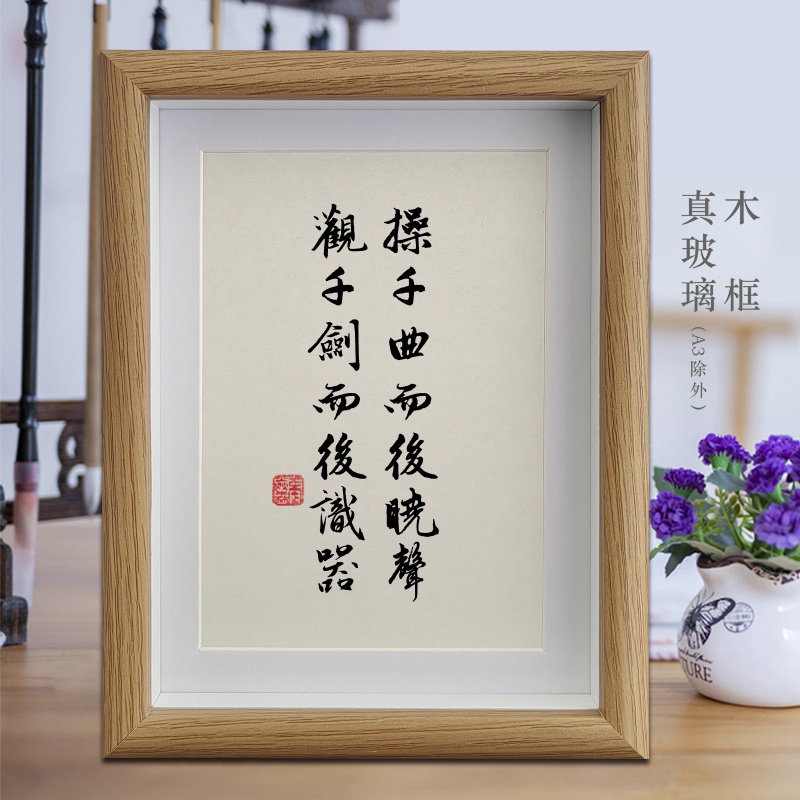 操千曲而後曉聲
觀千劍而後識器
木框
真玻璃
(A3除外)